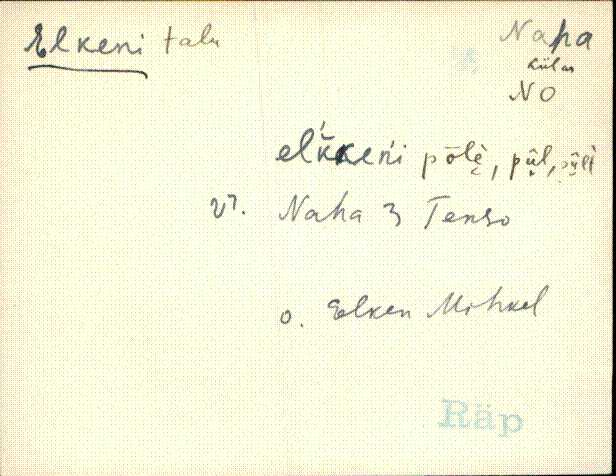 Elkeni talu
Naha
külas
NO
el'k̆keni pōlè̬,
vt. Naha 3 Tenso
o. Elken Mihkel
Räp